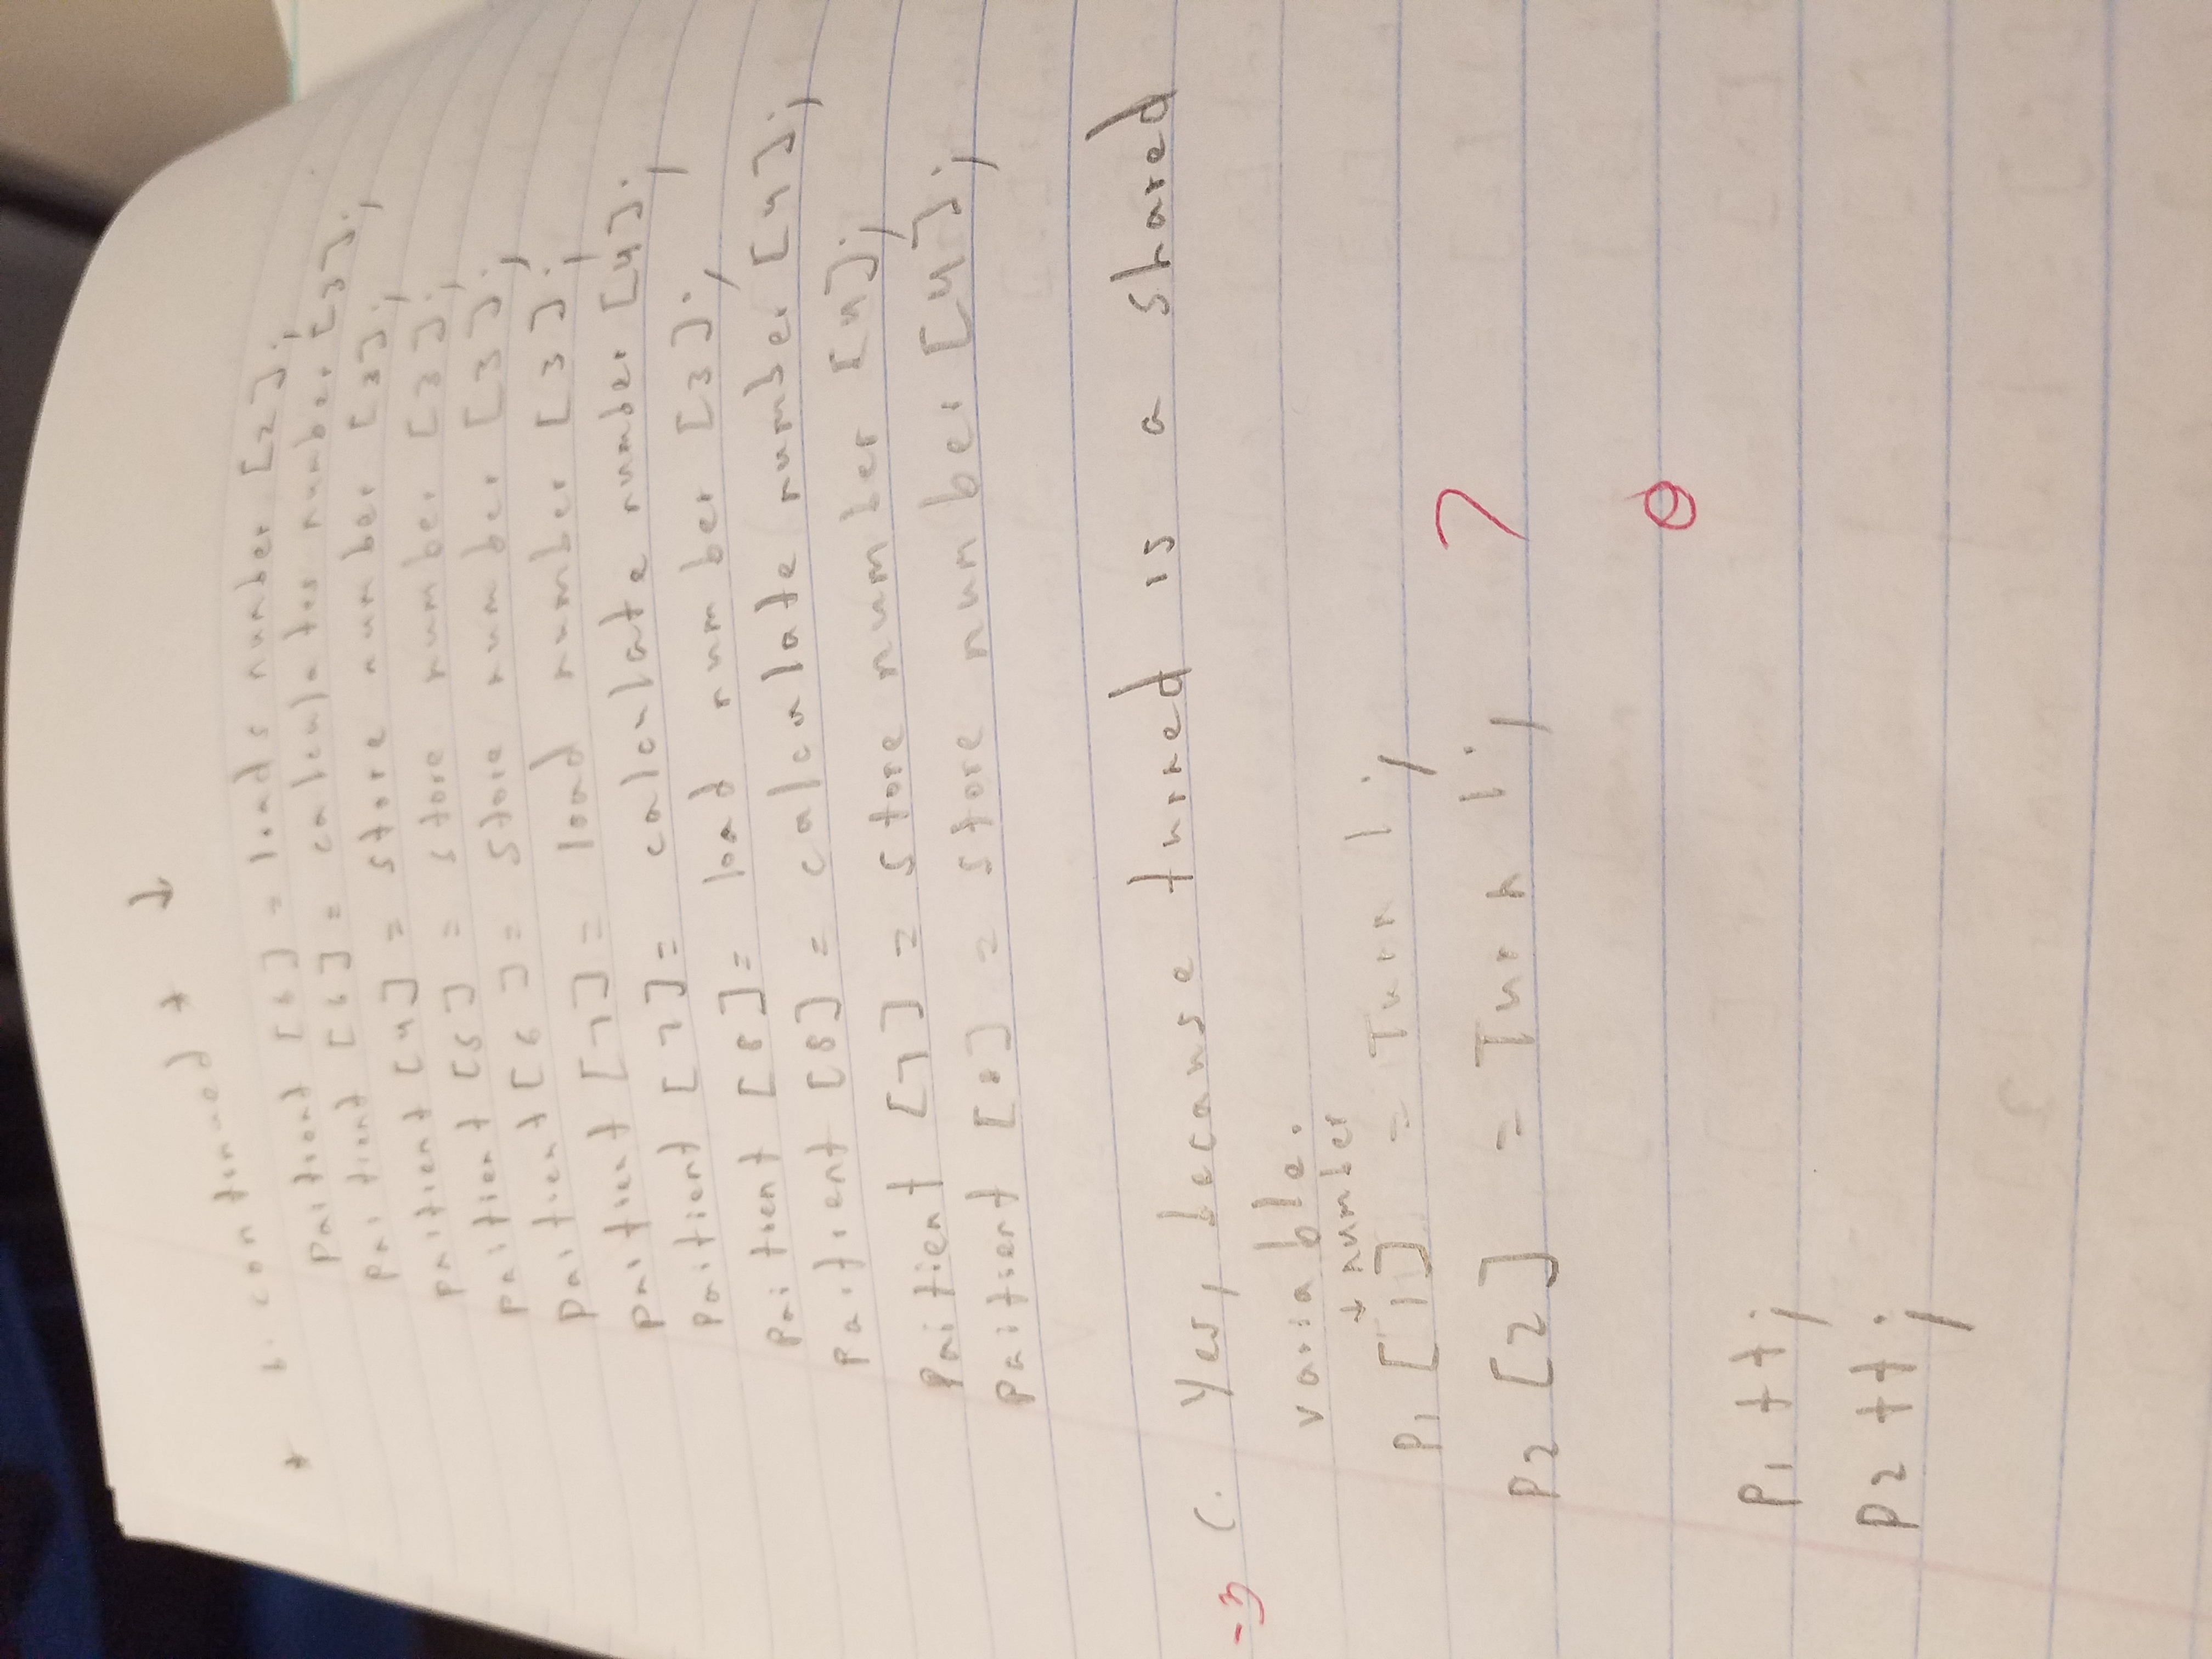 * b. continued * ↓
Paitient [6] = loads number [2];
Paitient [6] = calculates number [3];
Paitient [4] = store number [3];
Paitient [5] = store number [3];
Paitient [6] = store number [3];
Paitient [7] = load number [3];
Paitient [7] = calculate number [4];
Paitient [8] = load number [3];
Paitient [8] = calculate number [4];
Paitient [7] = store number [4];
Paitient [8] = store number [4];
-3 C. Yes, because turned is a shared
variable.
↓ number
P1 [1] = Turn 1;
P2 [2] = Turn 1; ?
P1 ++;
P2 ++;